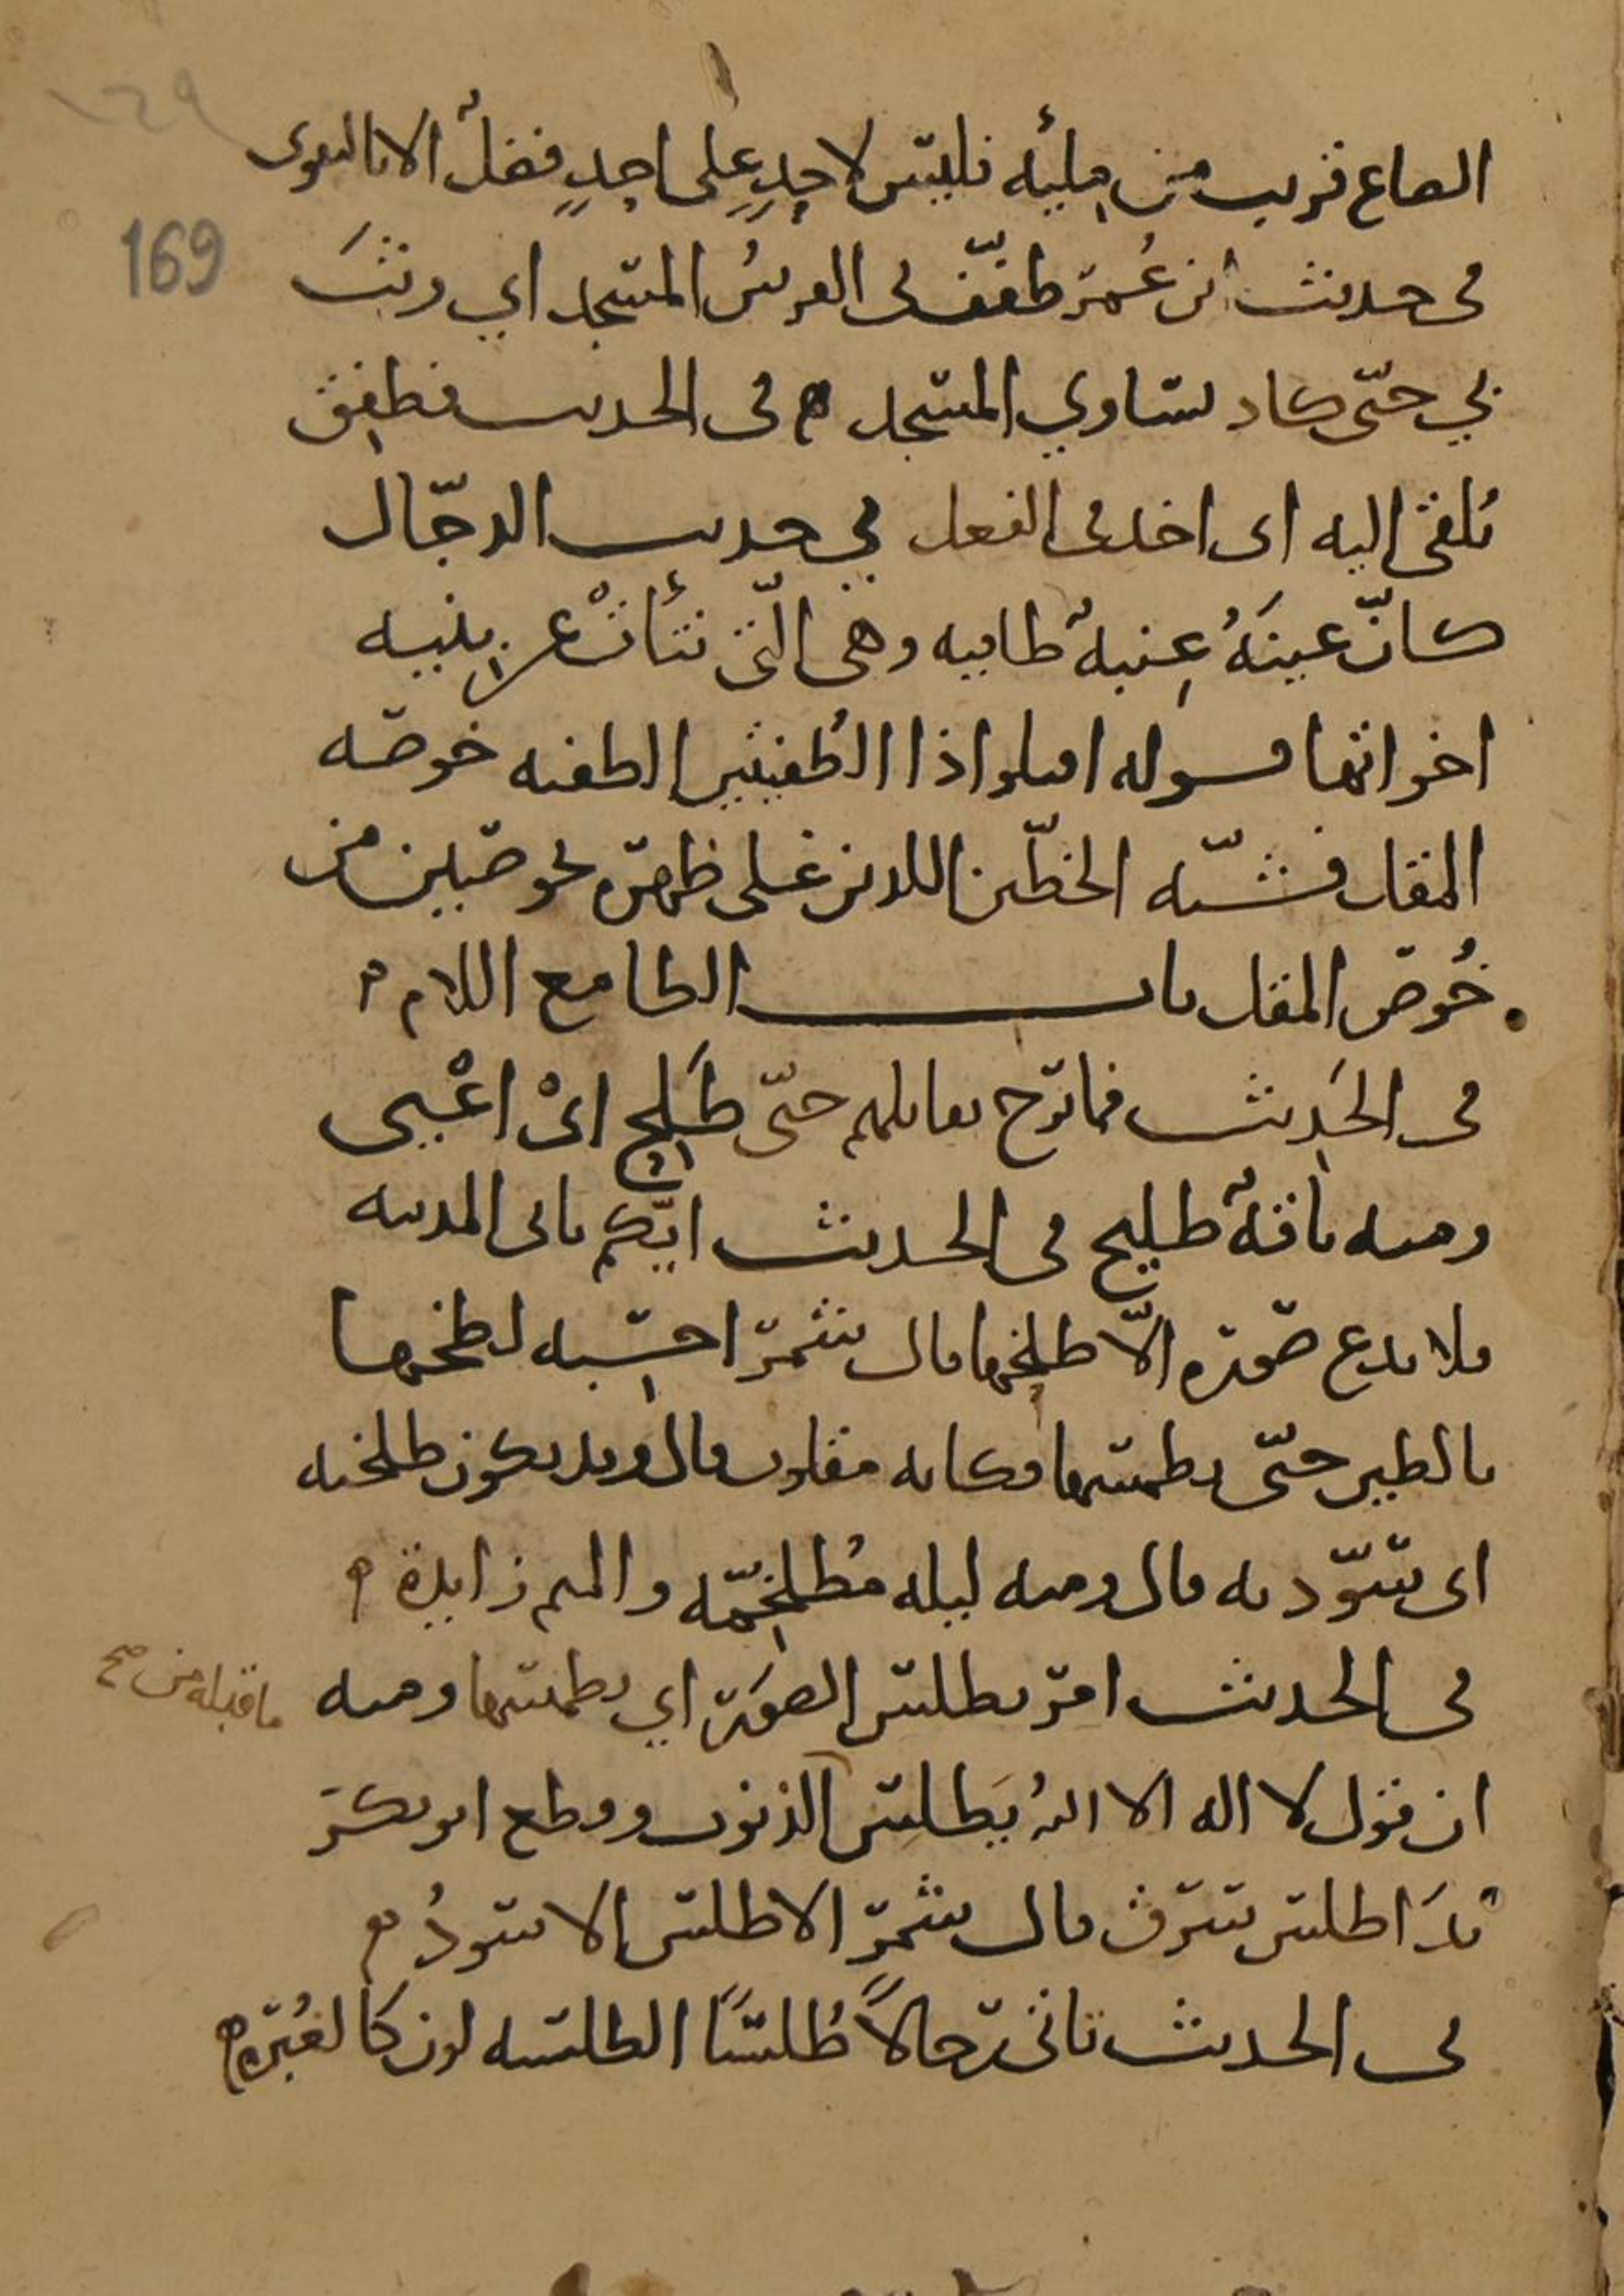 169
الصاع قريب من مليه فليس لاحدٍ على احدٍ فضلٌ الا بالتقوى
فى حديث ابن عُمر طفّف بى الفرسُ المسجد اي وثبَ
بي حتّى كاد يساوي المسجد ه فى الحديث فطفِق
يُلقى اليه اى اخذ فى الفعل في حديث الدجّال
كانّ عينَهُ عِنبةٌ طافيه وهى الّتى نتأتْ عن بنيه
اخواتها قوله اقتلوا ذا الطُفيتين الطفيه خوصه
المقل فشبّه الخطّين اللذين على ظهره بخوصتين من
خُوص المقل باب الطا مع اللام ه
فى الحَديث فما برح يقاتلهم حتّى طَلِح اىْ اعْيى
ومنه ناقةٌ طليح فى الحديث ايّكم ياتى المدينه
فلا يدع صورة الّا طلخها قال شمر احسِبه لطخها
بالطين حتّى يطمسها وكانه مقلوب قال وقد يكون طلخته
اى سوّدته قال ومنه ليله مُطلخِمّه والميم زايدة ه
فى الحديث امر بطلس الصوَر اي بطمسها ومنه
ما قبله من صح
ان قول لا اله الا اللهُ يَطلِس الذنوب وقطع ابو بكر
يدَ اطلس سرق قال شمر الاطلس الاسودُ ه
فى الحديث تاتى رجالاً طُلسًا الطلسه لون كالغُبره ه